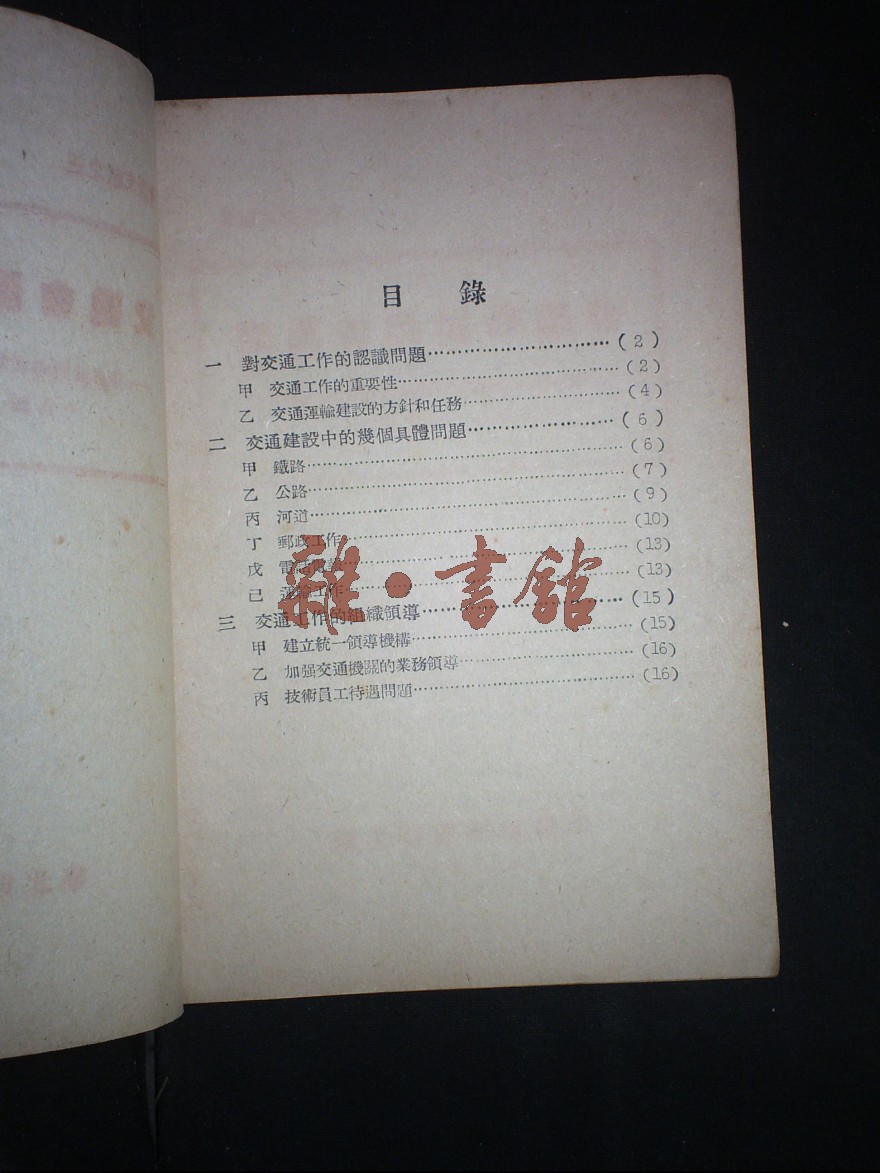 目錄
一 對交通工作的認識問題……………………(2)
甲 交通工作的重要性……………………(2)
乙 交通運輸建設的方針和任務……………………(4)
二 交通建設中的幾個具體問題……………………(6)
甲 鐵路……………………(6)
乙 公路……………………(7)
丙 河道……………………(9)
丁 郵政工作……………………(10)
戊 電話……………………(13)
己 運輸工作……………………(13)
三 交通工作的組織領導……………………(15)
甲 建立統一領導機構……………………(15)
乙 加强交通機關的業務領導……………………(16)
丙 技術員工待遇問題……………………(16)
雜·書館